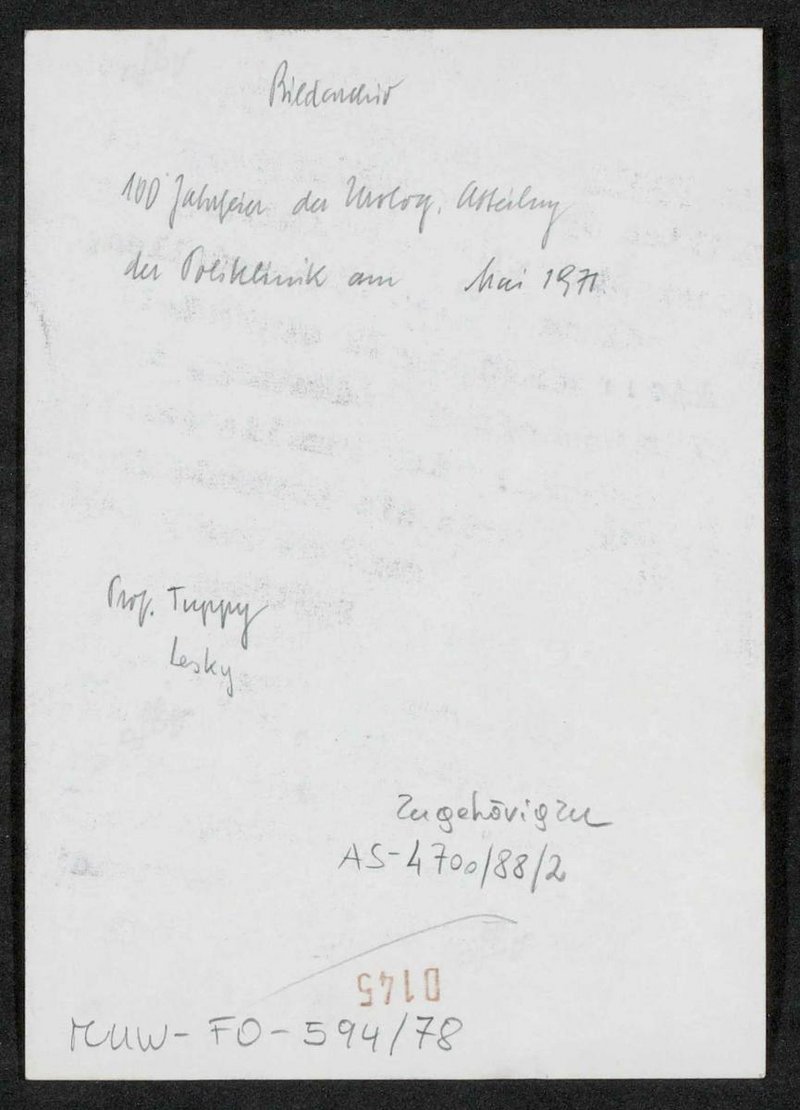 Bildarchiv
100 Jahrfeier der Urolog. Abteilung
der Poliklinik am Mai 1971
Prof. Tuppy
Lesky
Zugehörig zu
AS-4700/88/2
0145
MUW-FO-594/78